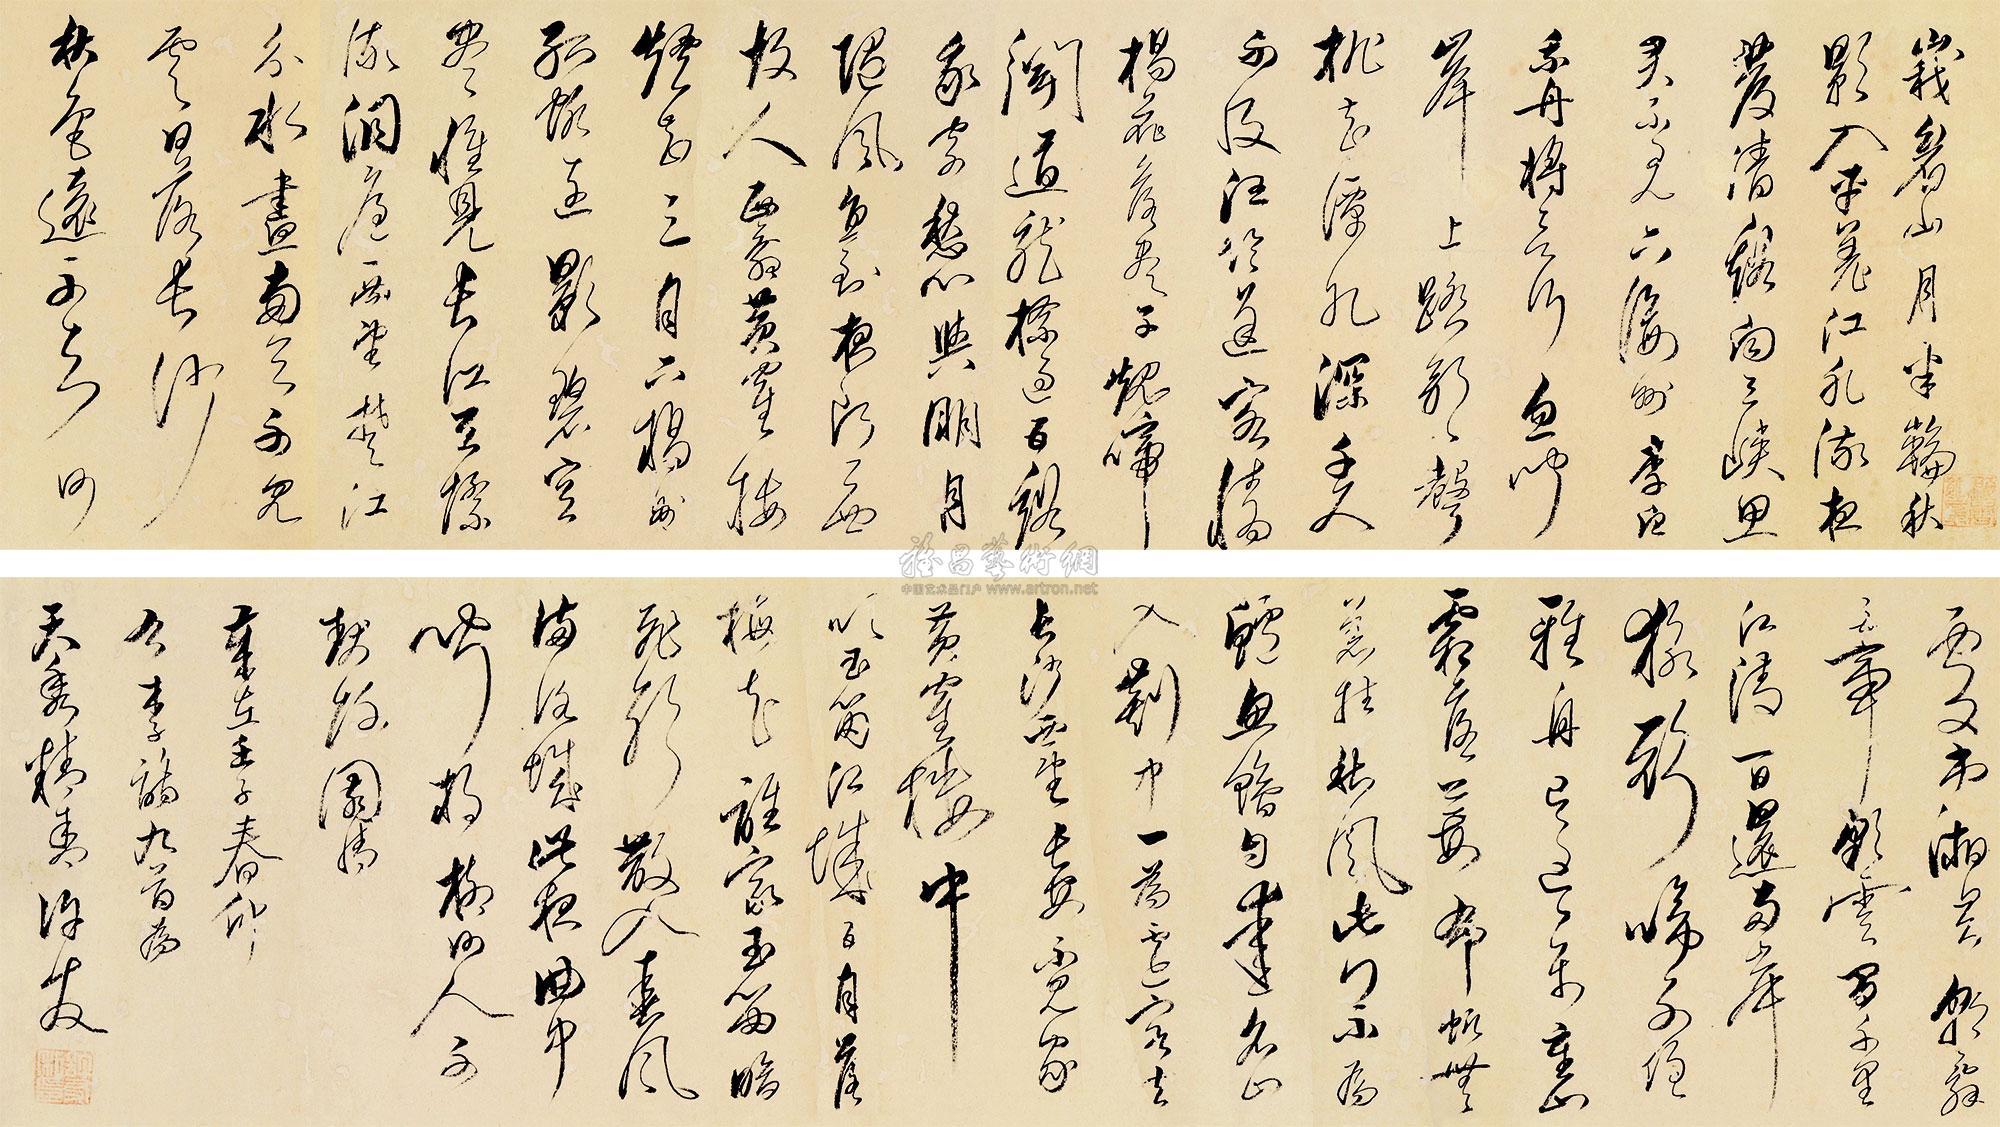 峨眉山月半輪秋
影入平羌江水流夜
發清谿向三峽思
君不見下渝州 李白
乘舟將欲行忽聞
岸上踏歌聲
桃花潭水深千尺
不及汪倫送客情
楊花落盡子規啼
聞道龍標過五谿
我寄愁心與明月
隨風直到夜郎西
故人西辭黃鶴樓
煙花三月下揚州
孤帆遠影碧空
盡惟見長江天際
流洞庭西望楚江
分水盡南天不見
雲日落長沙
秋色遠不知何
處弔湘君 朝辭
白帝彩雲間千里
江陵一日還兩岸
猿聲啼不住
輕舟已過萬重山
霜落荊門布帆無
恙挂秋風此行不為
鱸魚鱠自愛名山
入剡中一為遷客去
長沙西望長安不見家
黃鶴樓中
吹玉笛江城五月落
梅花誰家玉笛暗
飛聲散入春風
滿洛城此夜曲中
聞折柳何人不
起故園情
在壬子春仲
李詩九首為
天秀 許友
www.artron.net